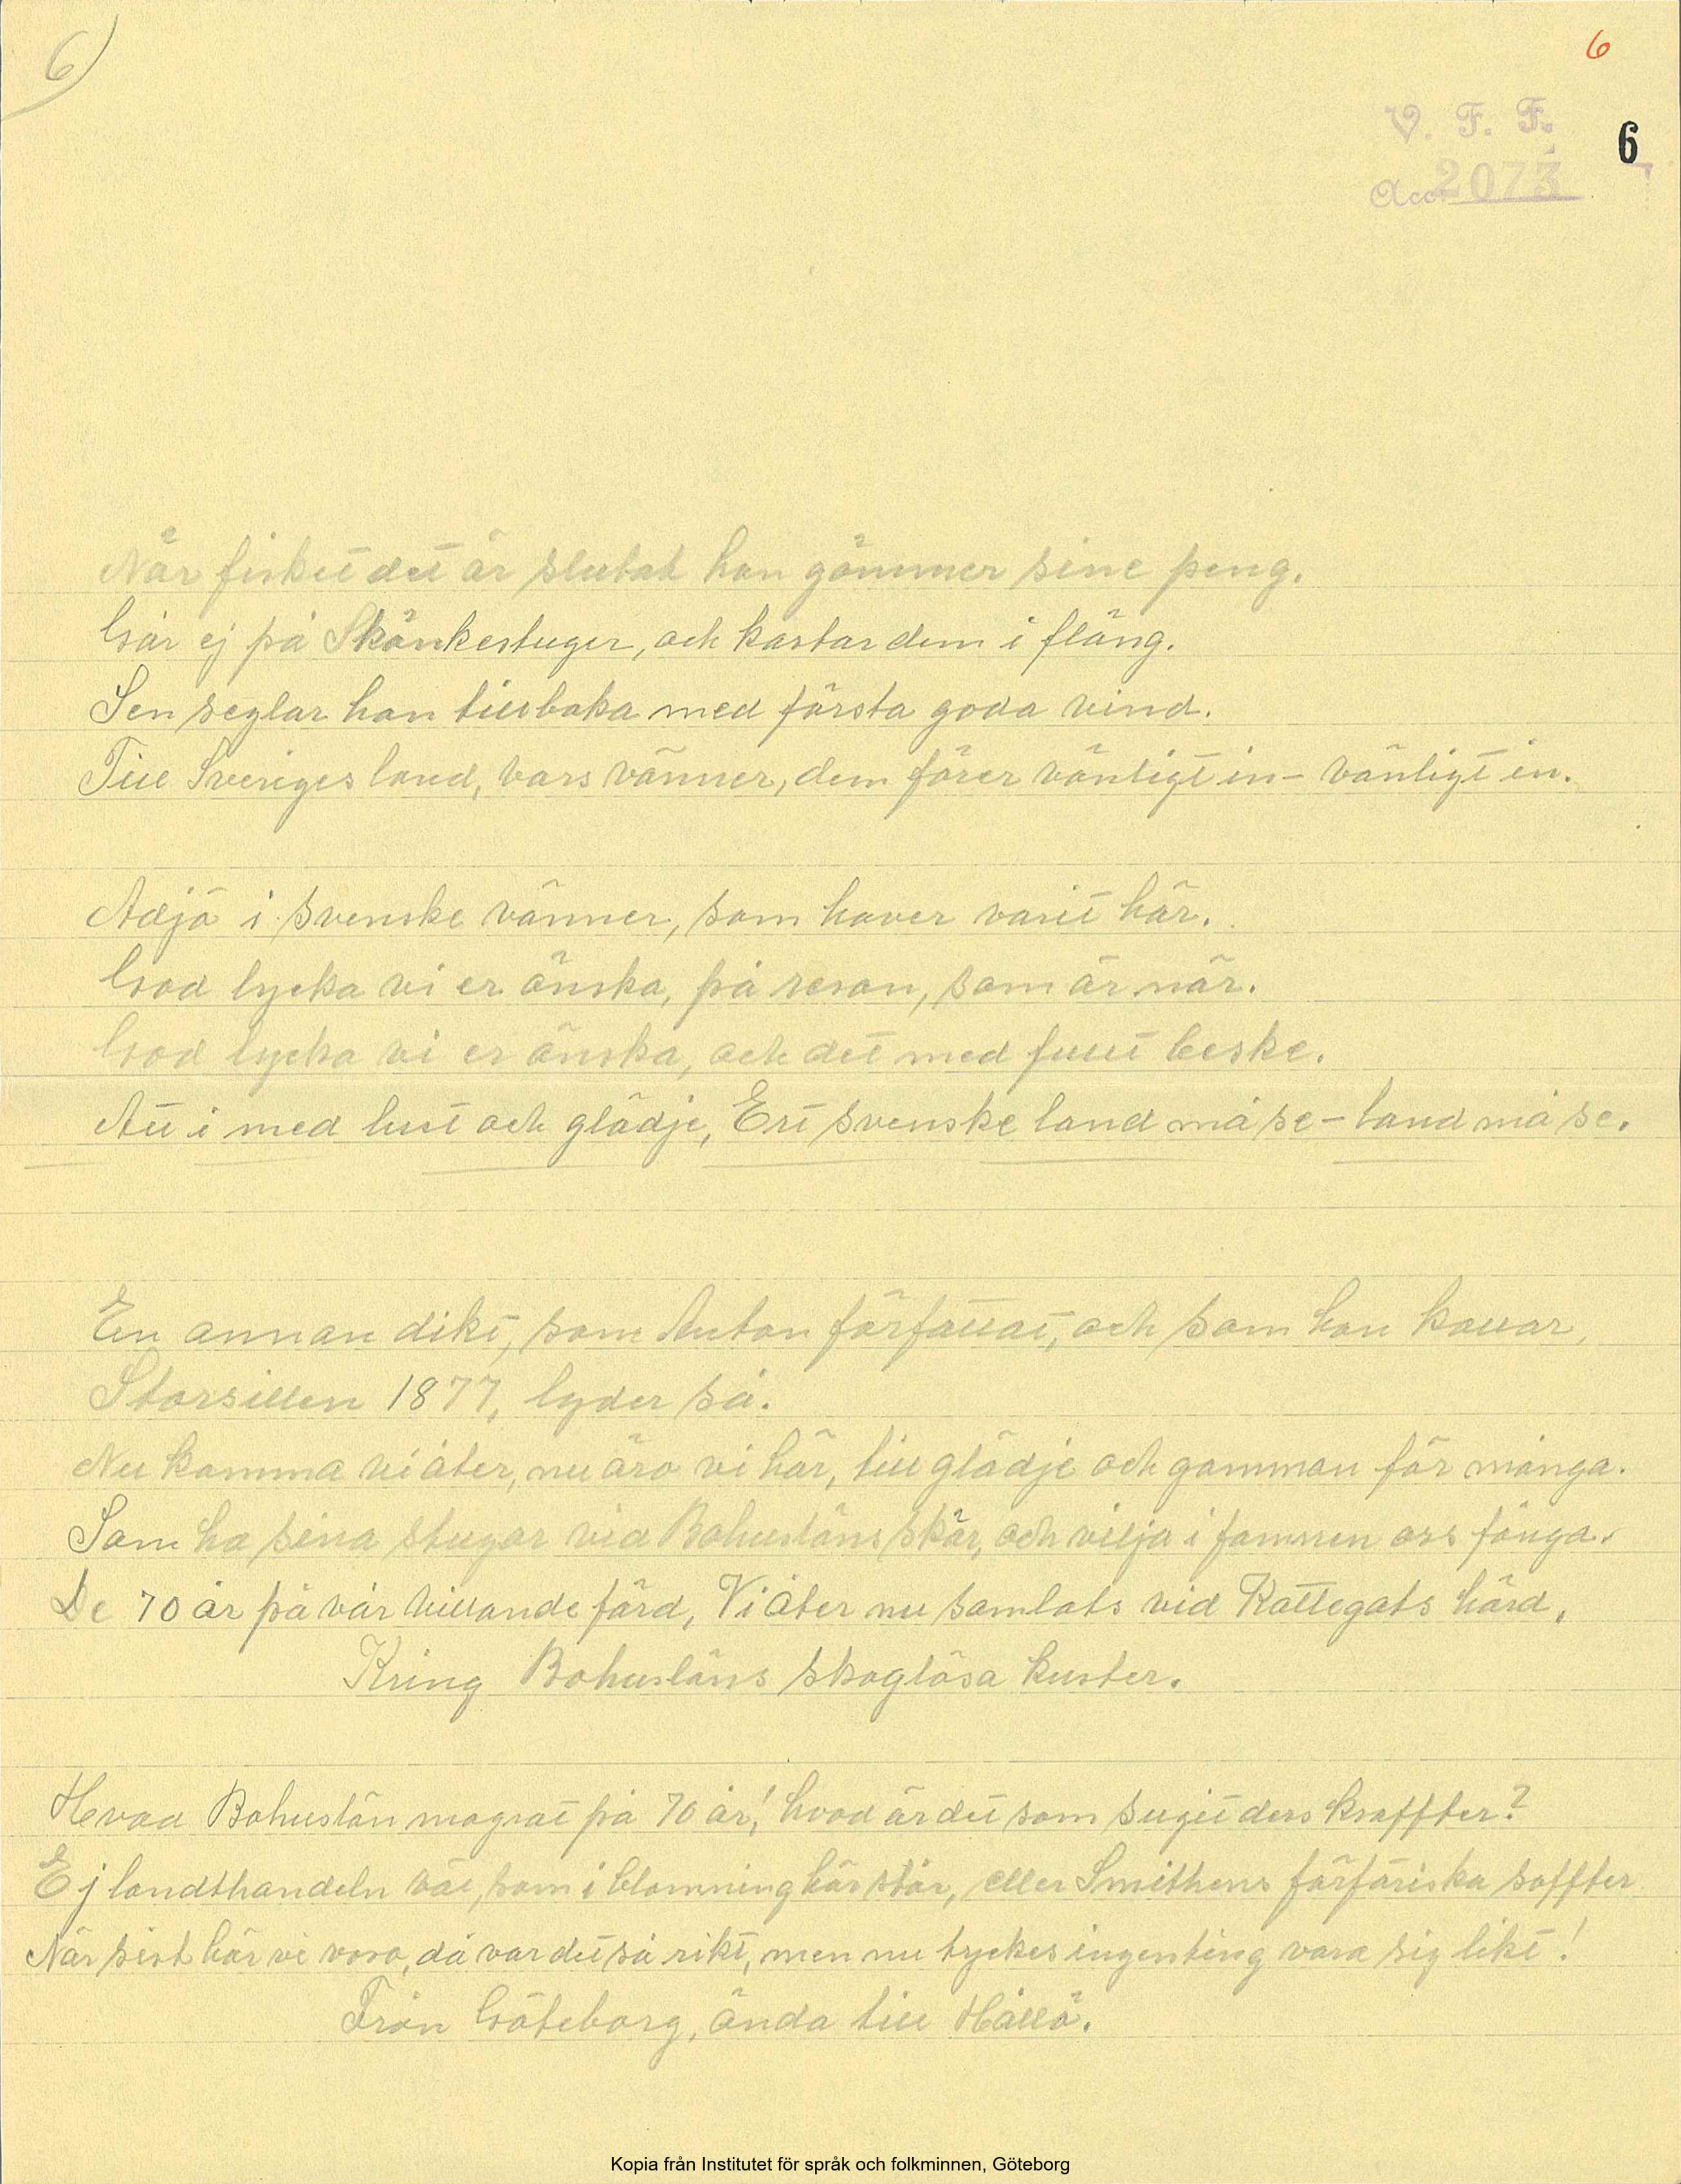 6)
6
V. F. F.
6
Acc. 2073
När fisket det är slutat han gömmer sine peng.
Går ej på Skänkestuger, och kastar dem i fläng.
Sen seglar han tillbaka med första goda vind.
Till Sveriges land, vars vänner, dem förer vänligt in - vänligt in.
Adjö i svenske vänner, som haver varit här.
God lycka vi er önska, på resan, som är när.
God lycka vi er önska, och det med fullt beske.
Att i med lust och glädje, Ert svenske land må se - land må se.
En annan dikt, som Anton författat, och som han kallar,
Storsillen 1877, lyder så.
Nu komma vi åter, nu äro vi här, till glädje och gamman för många.
Som ha sina stugor vid Bohusläns skär, och vilja i famnen oss fånga.
De 70 år på vår villande färd, Vi åter nu samlats vid Kattegats härd,
Kring Bohusläns skoglösa kuster.
Hvad Bohuslän magrat på 70 år! hvad är det som sugit ders kraffter?
Ej landthandeln väl, som i blomning här står, eller Smithens förfäriska saffter
När sist här vi voro, då var det så rikt, men nu tyckes ingenting vara sig likt!
Från Göteborg, ända till Hållö.
Kopia från Institutet för språk och folkminnen, Göteborg